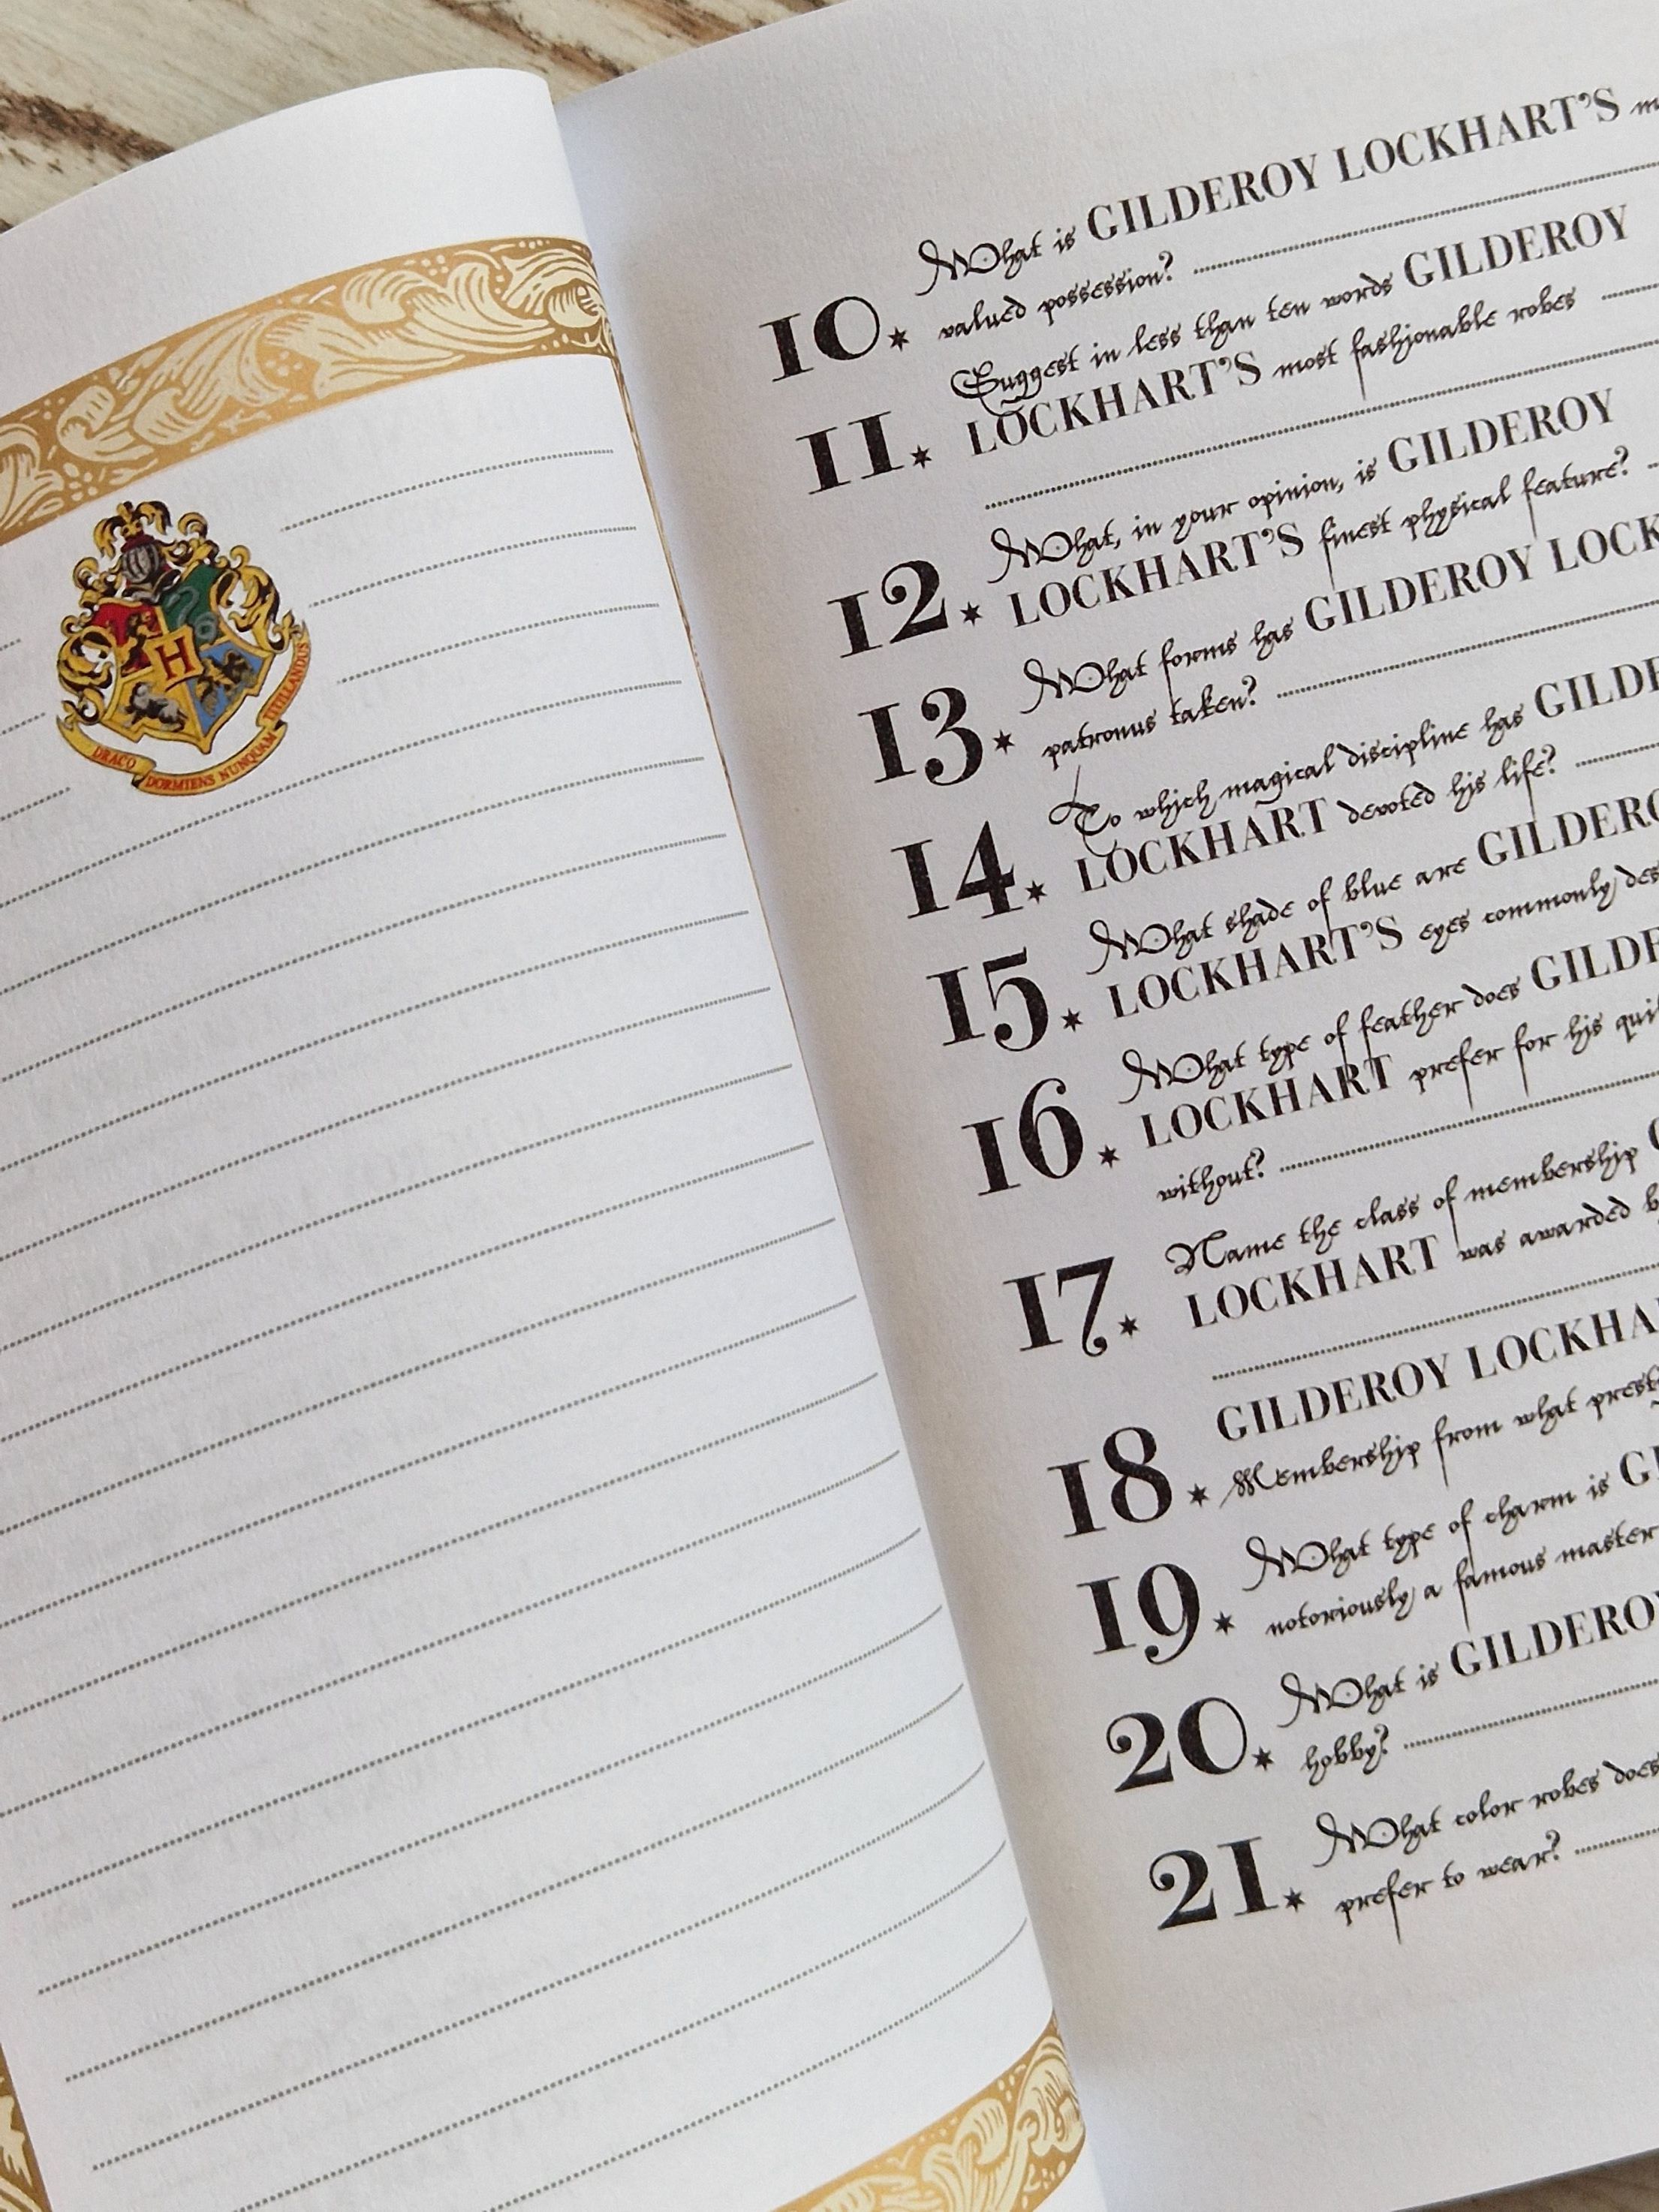 DRACO DORMIENS NUNQUAM TITILLANDUS
H
10. What is GILDEROY LOCKHART'S
valued possession?
11. Suggest in less than ten words GILDEROY
LOCKHART'S most fashionable robes
12. What, in your opinion, is GILDEROY
LOCKHART'S finest physical feature?
13. What forms has GILDEROY LOCK
patronus taken?
14. To which magical discipline has GILDE
LOCKHART devoted his life?
15. What shade of blue are GILDERO
LOCKHART'S eyes commonly des
16. What type of feather does GILDE
LOCKHART prefer for his qui
without?
17. Name the class of membership G
LOCKHART was awarded b
18. GILDEROY LOCKHA
Membership from what prest
19. What type of charm is GI
notoriously a famous master
20. What is GILDEROY
hobby?
21. What color robes does
prefer to wear?